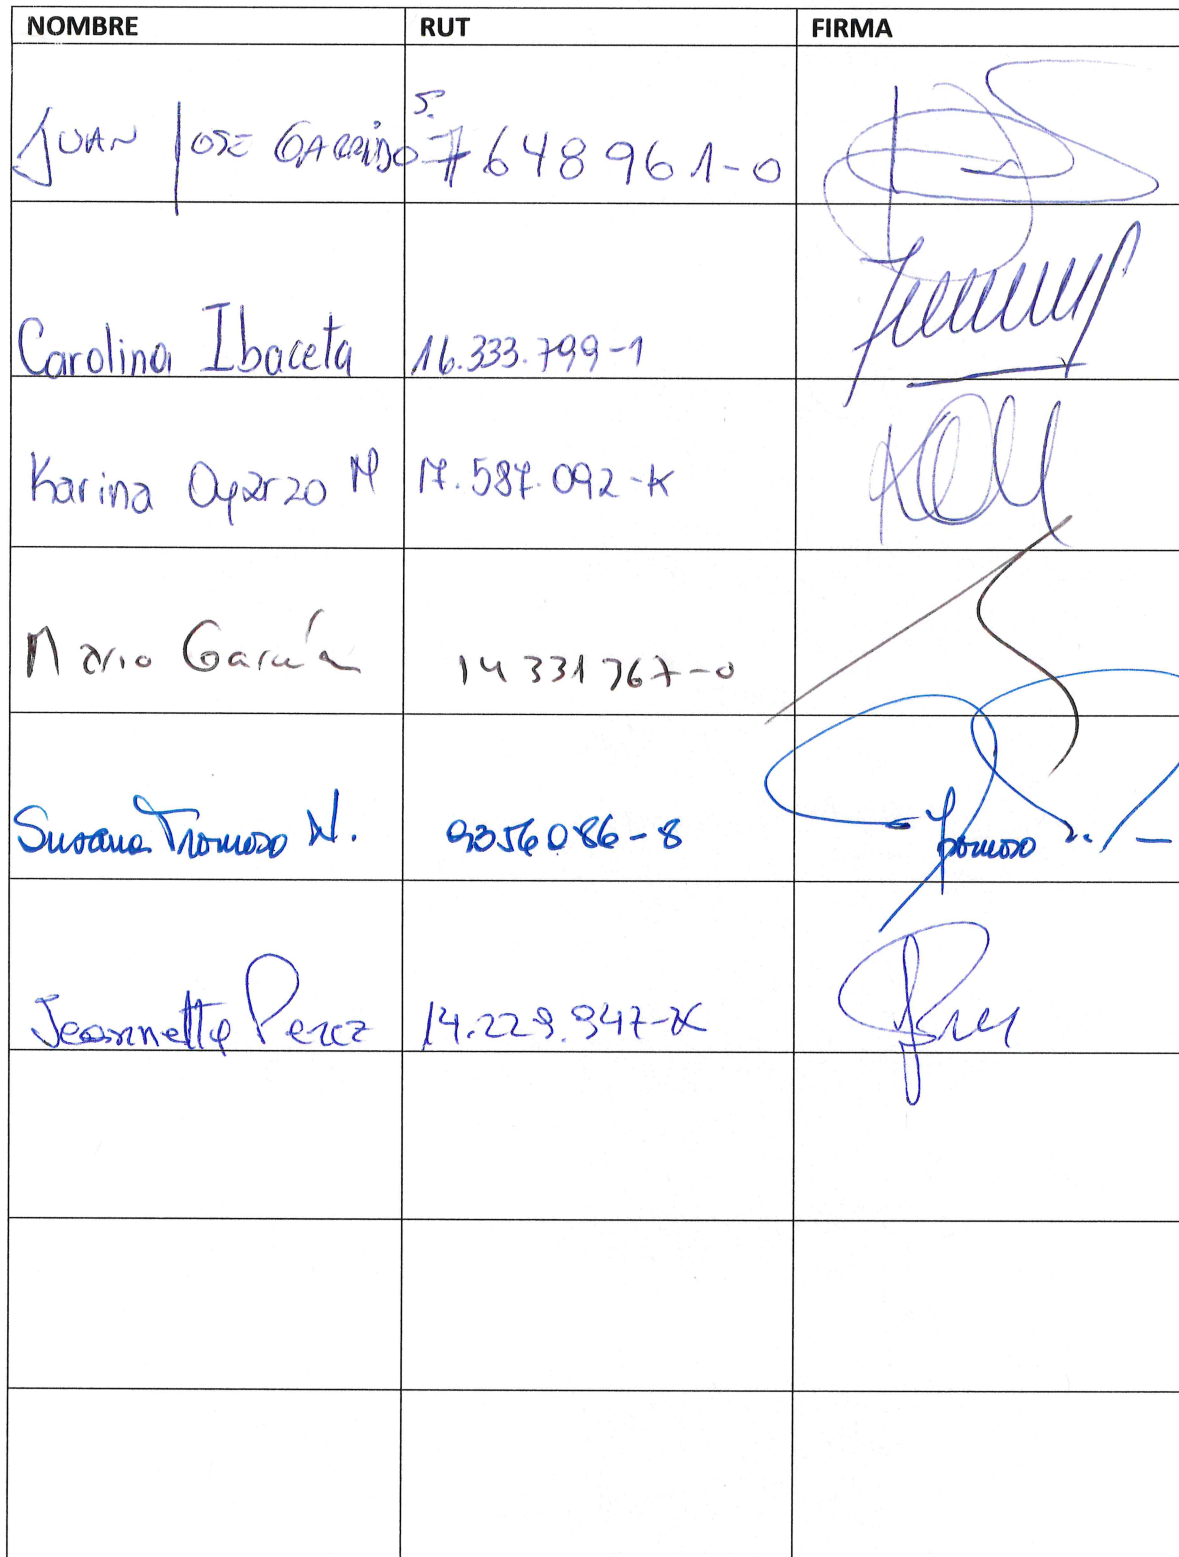 NOMBRE RUT FIRMA
JUAN JOSE GARRIDO S. 7648961-0
Carolina Ibaceta 16.333.799-1
Karina Oyarzo M 17.587.092-K
Mario García 14331767-0
Susana Tromoso N. 9356086-8
Jeannette Perez 14.229.947-K